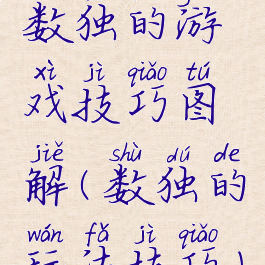 数独的游
xì jì qiǎo tú
戏技巧图
jiě shù dú de
解(数独的
wán fǎ jì qiǎo
玩法技巧)